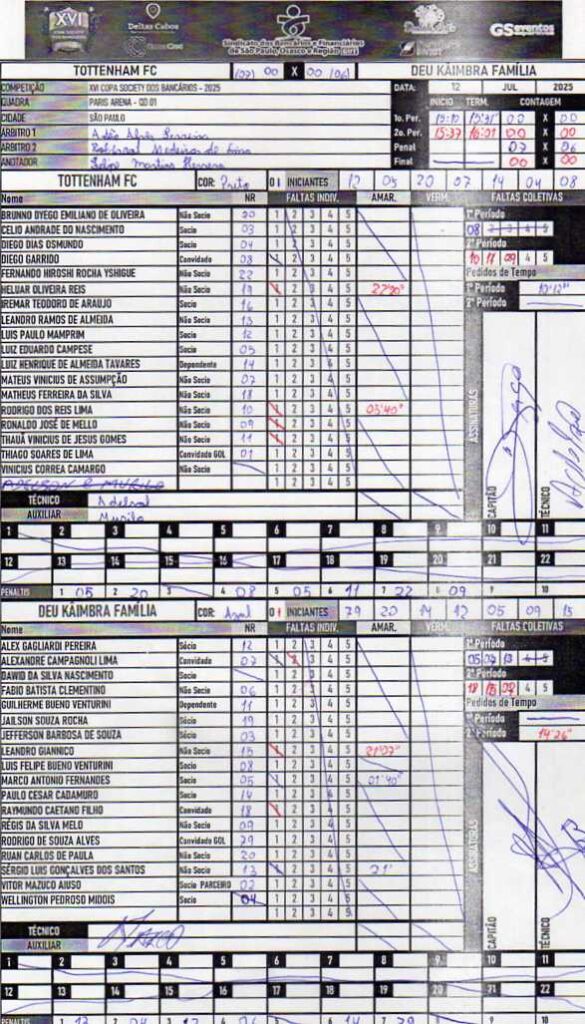 XVI
Deltas Cabos
Sindicato dos Bancários e Financiários
de São Paulo, Osasco e Região
GSeventos
TOTTENHAM FC 00 X 00 DEU KÂIMBRA FAMÍLIA
COMPETIÇÃO XVI COPA SOCIETY DOS BANCÁRIOS - 2025 DATA: 12 JUL 2025
QUADRA PARIS ARENA - QD 01 INÍCIO TERM. CONTAGEM
CIDADE SÃO PAULO 1o. Per. 15:10 15:31 00 X 00
ÁRBITRO 1 2o. Per. 15:37 16:01 00 X 00
ÁRBITRO 2 Penal 07 X 06
ANOTADOR Felipe Martins Final 00 X 00
TOTTENHAM FC COR: Preto INICIANTES 12 05 20 07 14 04 08
Nome NR FALTAS INDIV. AMAR. VERM. FALTAS COLETIVAS
BRUNNO DYEGO EMILIANO DE OLIVEIRA Não Socio 20 1 2 3 4 5 1º Período
CELIO ANDRADE DO NASCIMENTO Socio 03 1 2 3 4 5 08 2 3 4 5
DIEGO DIAS OSMUNDO Socio 04 1 2 3 4 5 2º Período
DIEGO GARRIDO Convidado 08 1 2 3 4 5 10 11 09 4 5
FERNANDO HIROSHI ROCHA YSHIGUE Não Socio 22 1 2 3 4 5 Pedidos de Tempo
HELUAR OLIVEIRA REIS Não Socio 19 1 2 3 4 5 1º Período 10'12"
IREMAR TEODORO DE ARAUJO Socio 16 1 2 3 4 5 2º Período
LEANDRO RAMOS DE ALMEIDA Não Socio 13 1 2 3 4 5
LUIS PAULO MAMPRIM Socio 12 1 2 3 4 5
LUIZ EDUARDO CAMPESE Socio 05 1 2 3 4 5
LUIZ HENRIQUE DE ALMEIDA TAVARES Dependente 14 1 2 3 4 5
MATEUS VINICIUS DE ASSUMPÇÃO Não Socio 07 1 2 3 4 5
MATHEUS FERREIRA DA SILVA Não Socio 18 1 2 3 4 5
RODRIGO DOS REIS LIMA Não Socio 10 1 2 3 4 5 03'40"
RONALDO JOSÉ DE MELLO Não Socio 09 1 2 3 4 5
THAUÃ VINICIUS DE JESUS GOMES Não Socio 11 1 2 3 4 5
THIAGO SOARES DE LIMA Convidado GOL 01 1 2 3 4 5
VINICIUS CORREA CAMARGO Não Socio 1 2 3 4 5
1 2 3 4 5
ASSINATURAS
CAPITÃO
TÉCNICO
TÉCNICO
AUXILIAR Murilo
1 2 3 4 5 6 7 8 9 10 11
12 13 14 15 16 17 18 19 20 21 22
PENALTIS 1 05 2 20 3 4 08 5 05 6 11 7 22 8 09 9 10
DEU KÂIMBRA FAMÍLIA COR: Azul INICIANTES 79 20 14 12 05 09 15
Nome NR FALTAS INDIV. AMAR. VERM. FALTAS COLETIVAS
ALEX GAGLIARDI PEREIRA Sócio 12 1 2 3 4 5 1º Período
ALEXANDRE CAMPAGNOLI LIMA Convidado 07 1 2 3 4 5 4 5
DAWID DA SILVA NASCIMENTO Socio 1 2 3 4 5 2º Período
FABIO BATISTA CLEMENTINO Não Socio 06 1 2 3 4 5 18 15 07 4 5
GUILHERME BUENO VENTURINI Dependente 11 1 2 3 4 5 Pedidos de Tempo
JAILSON SOUZA ROCHA Sócio 19 1 2 3 4 5 1º Período
JEFFERSON BARBOSA DE SOUZA Sócio 03 1 2 3 4 5 2º Período 14'26"
LEANDRO GIANNICO Não Socio 15 1 2 3 4 5 21'07"
LUIS FELIPE BUENO VENTURINI Socio 08 1 2 3 4 5
MARCO ANTONIO FERNANDES Socio 05 1 2 3 4 5 01'40"
PAULO CESAR CADAMURO Socio 14 1 2 3 4 5
RAYMUNDO CAETANO FILHO Convidado 18 1 2 3 4 5
RÉGIS DA SILVA MELO Não Socio 09 1 2 3 4 5
RODRIGO DE SOUZA ALVES Convidado GOL 79 1 2 3 4 5
RUAN CARLOS DE PAULA Não Socio 20 1 2 3 4 5
SÉRGIO LUIS GONÇALVES DOS SANTOS Não Socio 13 1 2 3 4 5 21'
VITOR MAZUCO AIUSO Socio PARCEIRO 02 1 2 3 4 5
WELLINGTON PEDROSO MIDOIS Socio 04 1 2 3 4 5
1 2 3 4 5
ASSINATURAS
CAPITÃO
TÉCNICO
TÉCNICO
AUXILIAR
1 2 3 4 5 6 7 8 9 10 11
12 13 14 15 16 17 18 19 20 21 22
PENALTIS 1 13 2 04 3 4 5 6 14 7 79 9 10